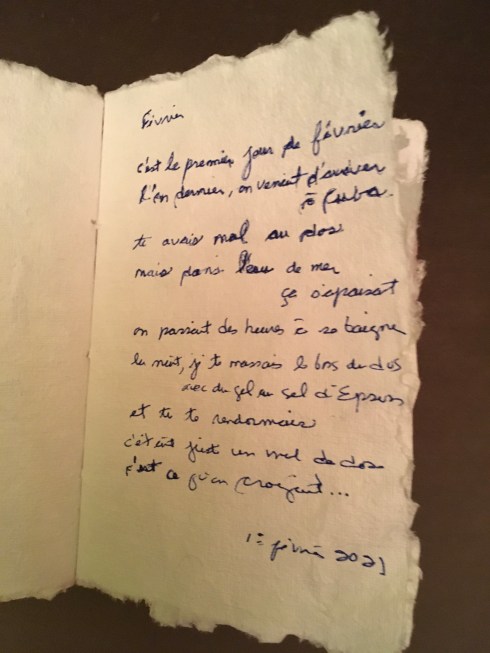 Février
c'est le premier jour de février
L'an dernier, on venait d'arriver
à Cuba.
tu avais mal au dos
mais dans l'eau de mer
ça s'apaisait
on passait des heures à se baigner
la nuit, je te massais le bas du dos
avec du gel au sel d'Epsom
et tu te rendormais
c'était just un mal de dos
c'est ce qu'on croyait...
1er février 2021